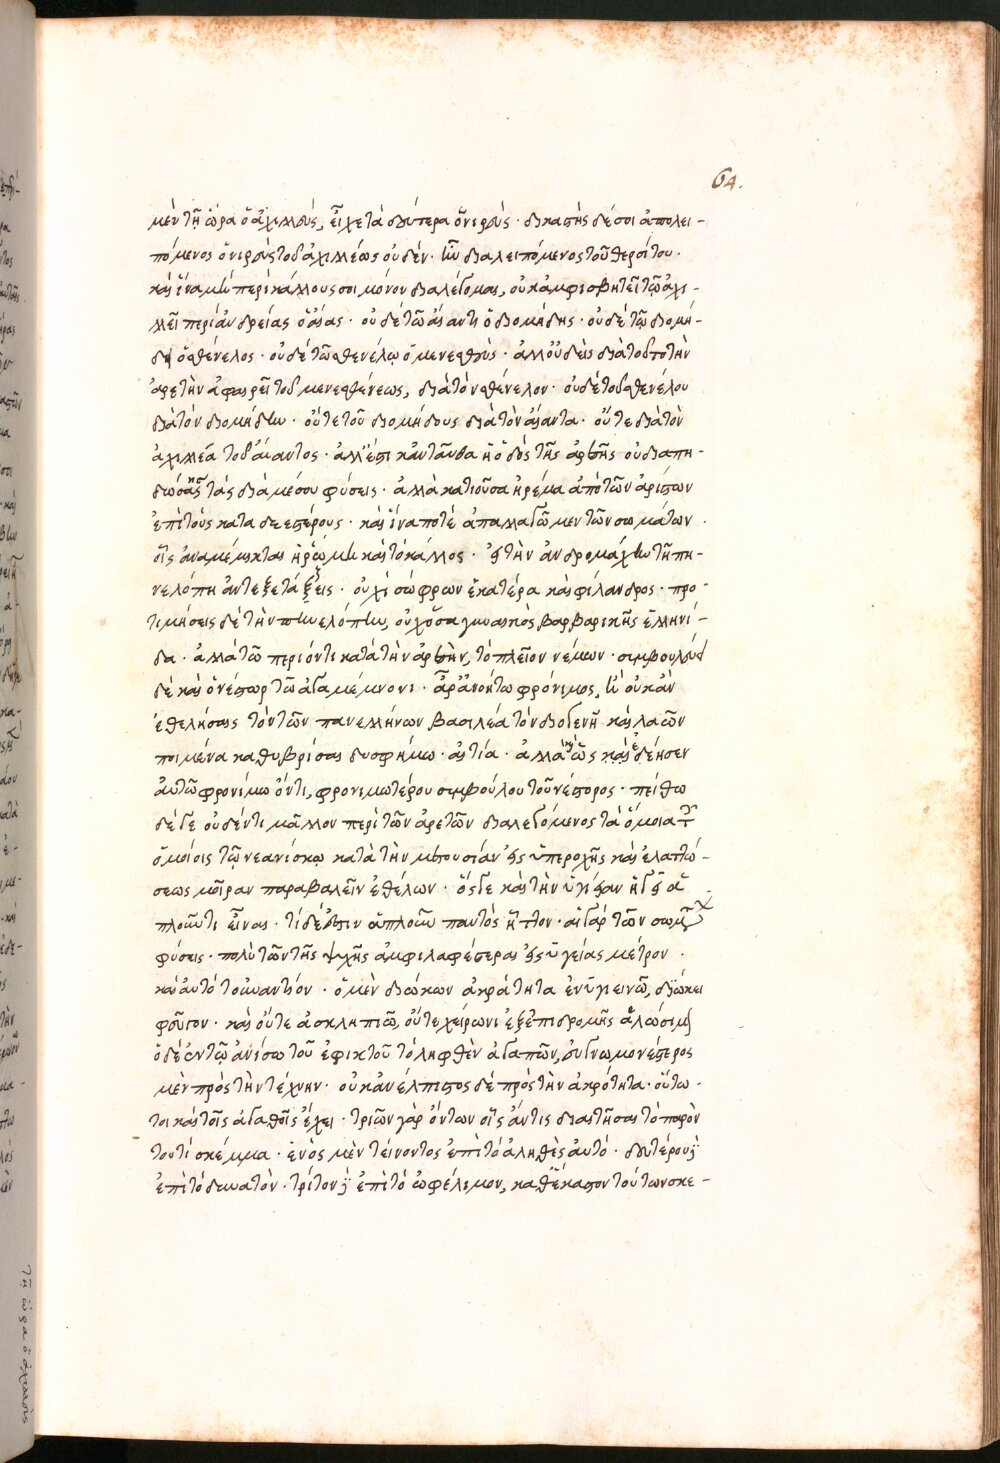 64.
μὲν τῇ ὥρα ὁ ἀχιλλεύς, εἶχε τὰ δεύτερα ὁ νιρεύς · δικαστὴς δέ σοι ἀπολει-
πόμενος ὁ νιρεὺς τοῦ ἀχιλλέως οὐδέν · ἢν διαλειπόμενος τοῦ θερσίτου ·
καὶ ἵνα μὴ περὶ κάλλους σοι μόνον διαλέγομαι, οὐκ ἀμφισβητεῖ τῷ ἀχι-
λλεῖ περὶ ἀνδρείας ὁ αἴας · οὐδὲ τῷ αἴαντι ὁ διομήδης · οὐδὲ τῷ διομή-
δη ὁ σθένελος · οὐδὲ τῷ σθενέλῳ ὁ μενεσθεύς · ἀλλ' οὐδεὶς διὰ τοῦτο τὴν
ἀρετὴν ἀφαιρεῖ τοῦ μενεσθένεως, διὰ τὸν σθένελον · οὐδὲ τοῦ σθενέλου
διὰ τὸν διομήδην · οὔτε τοῦ διομήδους διὰ τὸν αἴαντα · οὔτε διὰ τὸν
ἀχιλλέα τοῦ αἴαντος · ἀλλ' ἔστι κἀνταῦθα ἡ ὁδὸς τῆς ἀρετῆς οὐ διαπη-
δώσης τὰς διὰ μέσου φύσεις · ἀλλὰ κατιοῦσα ἠρέμα ἀπὸ τῶν ἀρίστων
ἐπὶ τοὺς καταδεεστέρους · καὶ ἵνα ποτὲ ἀπαλλαγῶμεν τῶν σωμάτων ·
οἷς ἀναμέμικται ἡ ῥώμη καὶ τὸ κάλλος · τὴν ἀνδρομάχην τῇ πη-
νελόπη ἀντεξετάξεις · οὐχὶ σώφρων ἑκατέρα καὶ φίλανδρος · προ-
τιμήσεις δὲ τὴν πηνελόπην, οὐχ ὅσα γυναικὸς βαρβαρικῆς ἑλληνί-
δα · ἀλλὰ τῶ περιόντι κατὰ τὴν ἀρετήν, τὸ πλεῖον νέμων · συμβουλεύει
δὲ καὶ ὁ νέστωρ τῶ ἀγαμέμνονι · ἆρα ἀνοήτω φρόνιμος, ἢ οὐκ ἂν
ἐθελήσαις τὸν τῶν πανελλήνων βασιλέα τὸν διογενῆ καὶ λαῶν
ποιμένα καθυβρίσαι δυσφήμω · αἰτία · ἀλλὰ ὣς καὶ ἐδέησεν
αὐτῶ φρονίμω ὄντι, φρονιμωτέρου συμβούλου τοῦ νέστορος · πείθω
δέ γε οὐδέν τι μᾶλλον περὶ τῶν ἀρετῶν διαλεγόμενος τὰ ὅμοια τοῖς
ὁμοίοις τῷ νεανίσκῳ κατὰ τὴν μετουσίαν τῆς ὑπεροχῆς καὶ ἐλαττώ-
σεως μοῖραν παραβαλεῖν ἐθέλων · ὅς γε καὶ τὴν ὑγίειαν ἡγεῖται ἁ
πλοῦν τι εἶναι · τί δέ ἐστιν ἁπλοῦν παντὸς ἧττον · αἱ γὰρ τῶν σωμάτων
φύσεις · πολὺ τῶν τῆς ψυχῆς ἀμφιλαφέστεραι τῆς ὑγείας μέτρον ·
καὶ αὐτὸ τοὐναντίον · ὁ μὲν διώκων ἀκρότητα ἐν ὑγιεινῶ, διώκει
φεῦγον · καὶ οὔτε ἀσκληπιῶ, οὔτε χείρωνι ἐξ ἐπιδρομῆς ἁλώσιμον
ὁ δὲ ἐν τῷ ἀνίσω τοῦ ἐφικτοῦ τὸ ληφθὲν ἀγαπῶν, εὐγνωμονέστερος
μὲν πρὸς τὴν τέχνην · οὐκ ἀνέλπιστος δὲ πρὸς τὴν ἀκρότητα · οὕτω ·
τοι καὶ τοῖς ἀγαθοῖς ἔχει · τριῶν γὰρ ὄντων οἷς ἄν τις διαστῆσαι τὸ παρὸν
τουτὶ σκέμμα · ἑνὸς μὲν τείνοντος ἐπὶ τὸ ἀληθὲς αὐτό · δευτέρου δὲ
ἐπὶ τὸ δυνατόν · τρίτου δὲ ἐπὶ τὸ ὠφέλιμον, καθ' ἕκαστον τούτων σκε-
τῇ ὥρα ὁ ἀχιλλεὺς